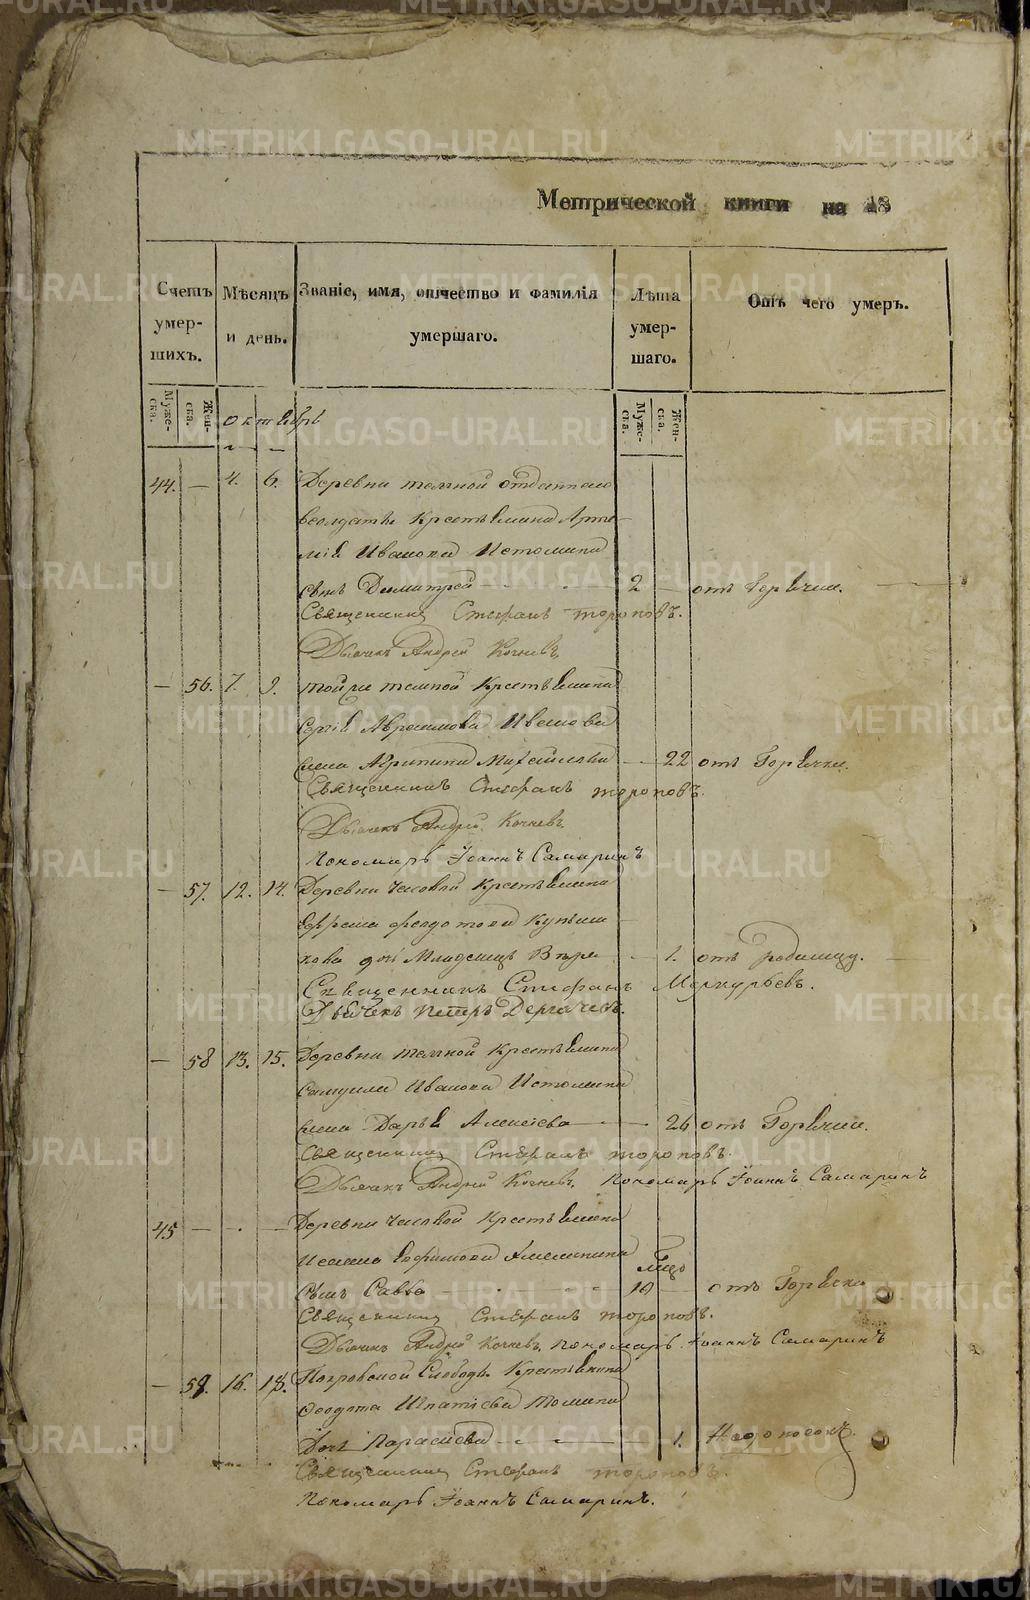 METRIKI.GASO-URAL.RU
Метрической книги на 18
Счетъ умер- шихъ.
Мѣсяцъ и день.
Званіе, имя, отчество и фамилія умершаго.
Лѣта умер- шаго.
Отъ чего умеръ.
Муже- ска.
Жен- ска.
Муже- ска.
Жен- ска.
октябрь
44. — 4. 6. Деревни темной отданнаго
всолдаты Крестьянина Арте
мія Иванова Истомина
сынъ Димитрей 2 — отъ Горячки.
Священникъ Стефанъ тороповъ.
Дьячекъ Андрей Кочневъ
— 56. 7. 9. той же темной Крестьянина
Сергія Аврамова Ившова
жена Агрипина Матвѣева 22 отъ Горячки.
Священникъ Стефанъ тороповъ.
Дьячекъ Андрей Кочневъ.
Пономарь Іоаннъ Самаринъ
— 57. 12. 14. Деревни Часовой Крестьянина
Ефрема федотова
дочь Младенецъ Вѣра — 1. отъ родимцу.
Священникъ Стефанъ Меркурьевъ.
Дьячекъ Петръ Дергачевъ.
— 58 13. 15. Деревни темной Крестьянина
Самуила Иванова Истомина
жена Дарья Алексѣева — 26 отъ Горячки.
Священникъ Стефанъ тороповъ.
Дьячекъ Андрей Кочневъ. Пономарь Іоаннъ Самаринъ
45 — . — Деревни Часовой Крестьянина
Ефимова
Сынъ Савва 10 — отъ Горячки
Священникъ Стефанъ тороповъ.
Дьячекъ Андрей Кочневъ, Пономарь Іоаннъ Самаринъ
— 59. 16. 18. Покровской Слободы Крестьянина
Ѳеодота Игнатіева Томина
Дочь Параскева — 1. Недоносокъ.
Священникъ Стефанъ тороповъ.
Пономарь Іоаннъ Самаринъ.